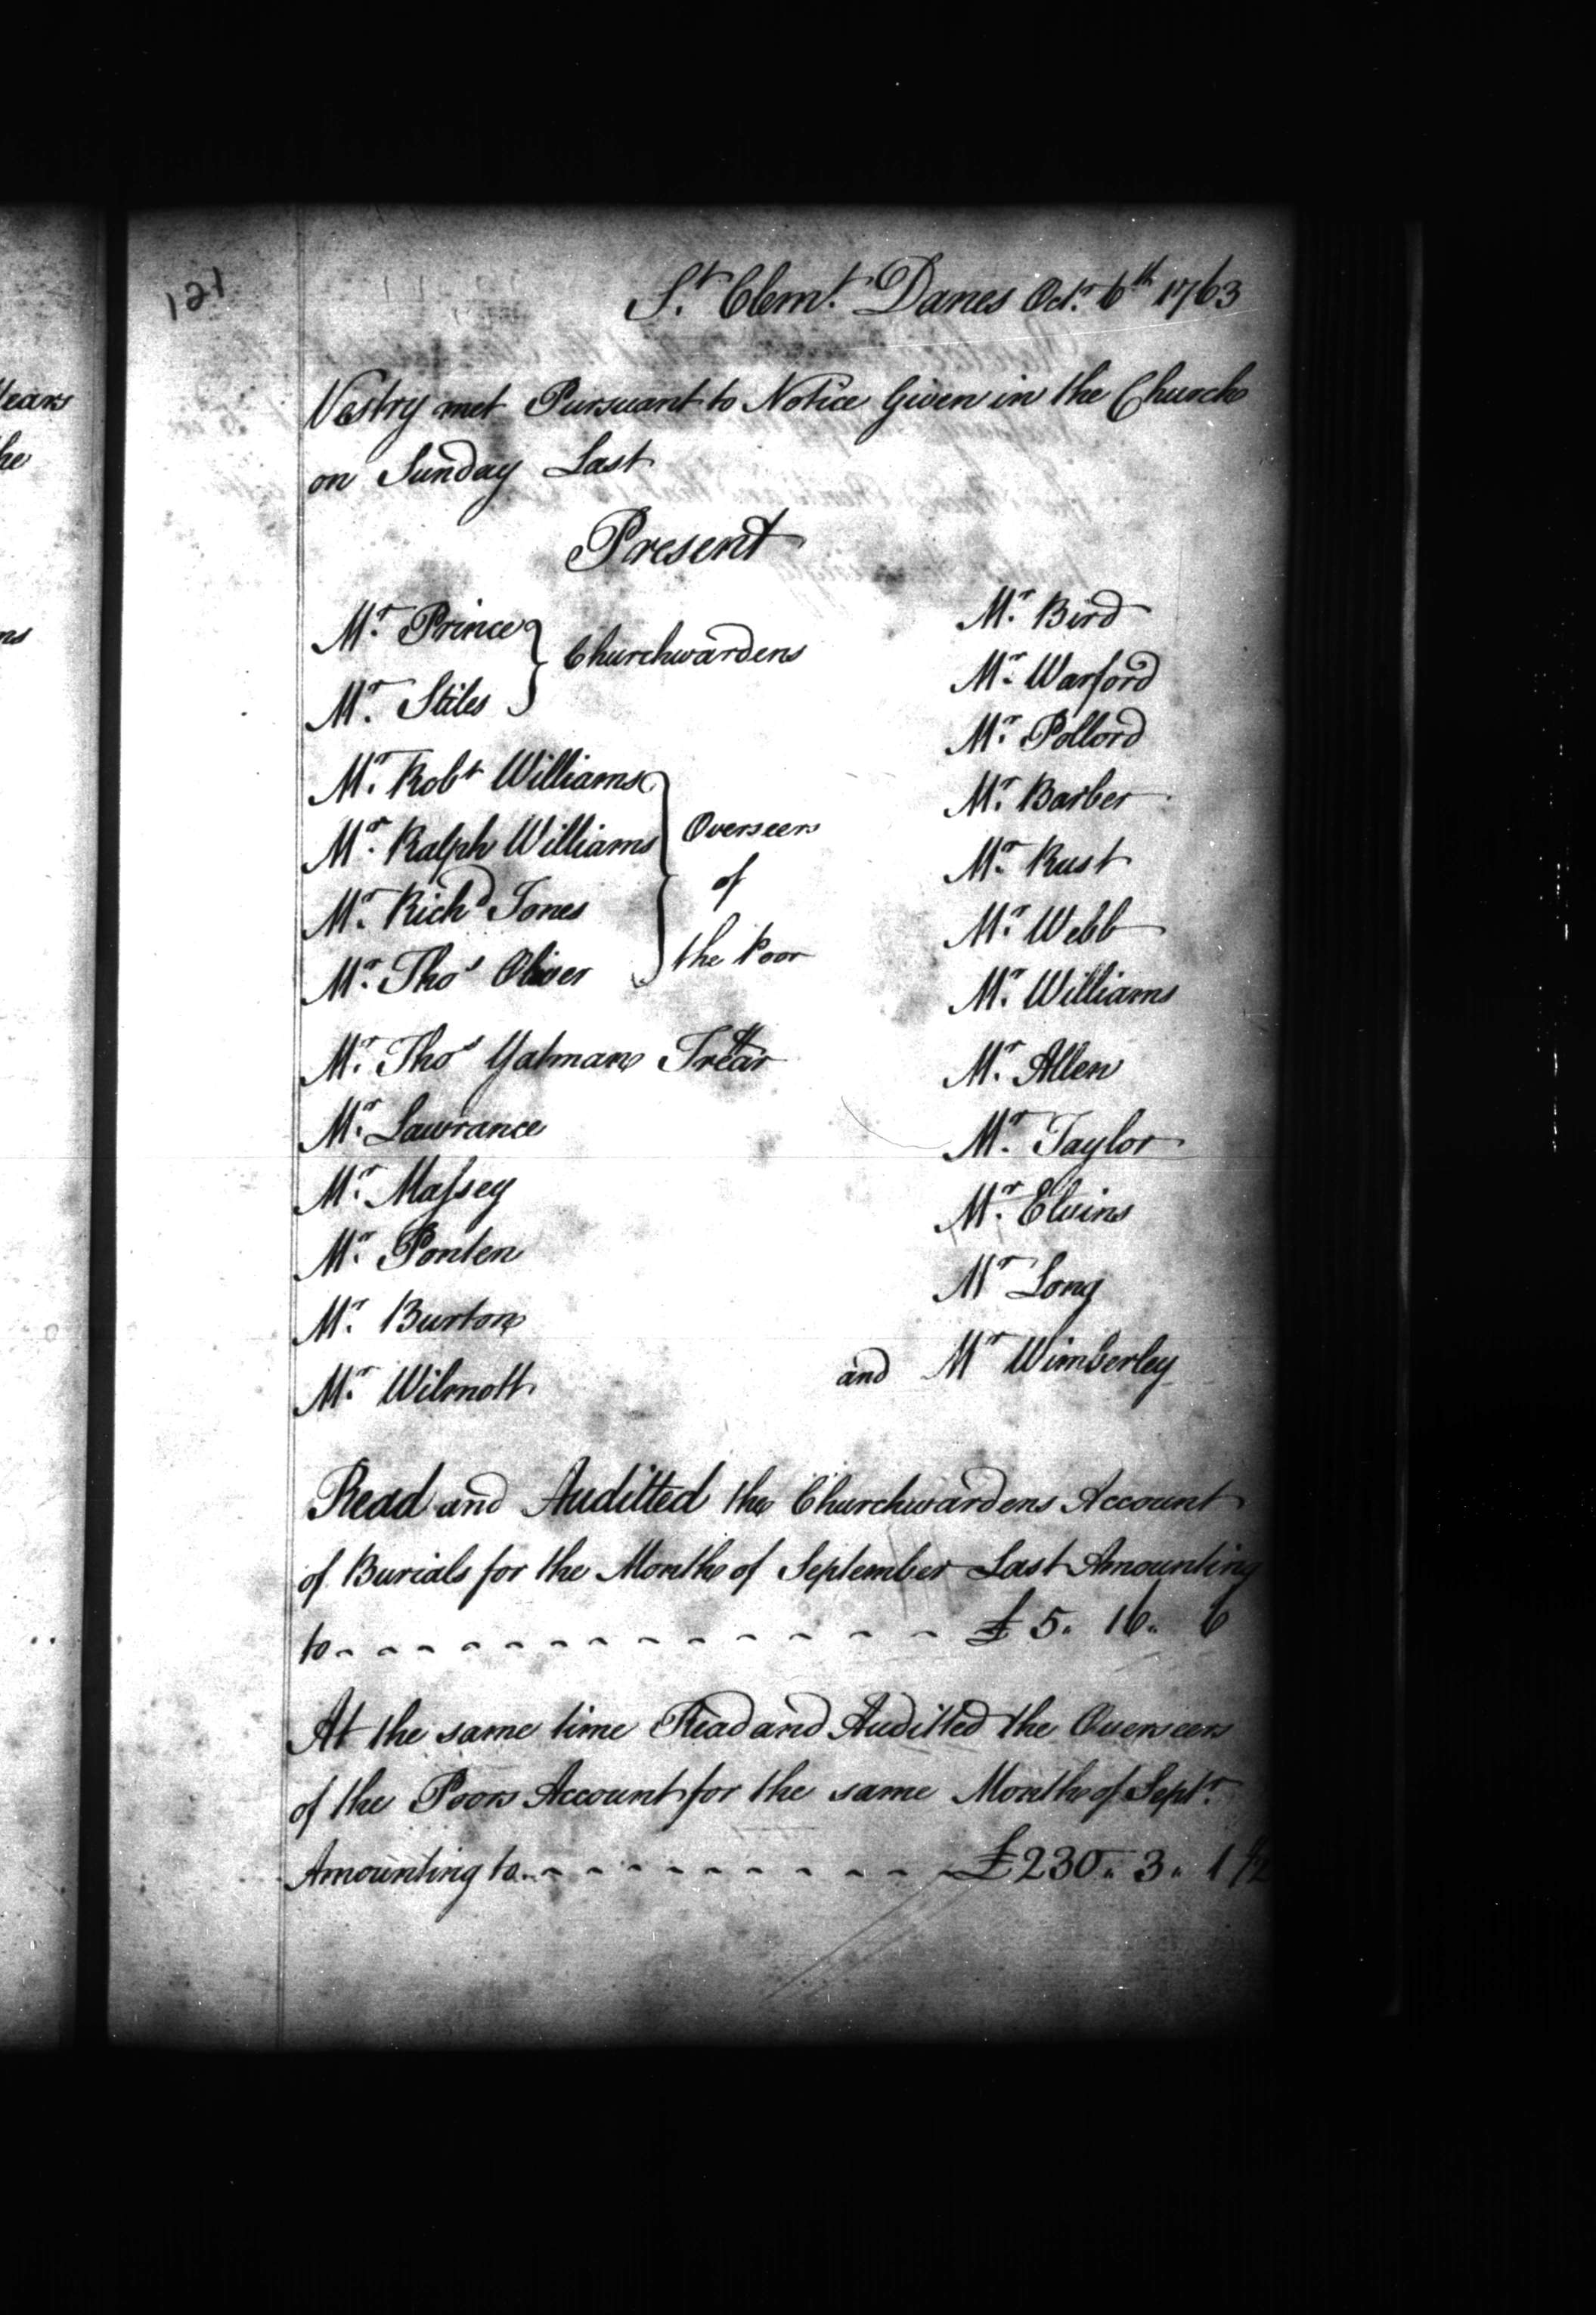 121
St. Clemt. Danes Octr. 6th 1763
Vestry met Pursuant to Notice Given in the Church
on Sunday Last
Present
Mr. Prince
Mr. Stiles
Churchwardens
Mr. Robt Williams
Mr. Ralph Williams
Mr. Richd Jones
Mr. Thos Oliver
Overseers
of
the Poor
Mr. Thos Yatman Trear
Mr. Lawrance
Mr. Massey
Mr. Ponten
Mr. Burton
Mr. Wilmott
Mr. Bird
Mr. Warford
Mr. Pollord
Mr. Barber
Mr. Rust
Mr. Webb
Mr. Williams
Mr. Allen
Mr. Taylor
Mr. Elvins
Mr Long
and Mr Wimberley
Read and Auditted the Churchwardens Account
of Burials for the Month of September Last Amounting
to - - - - - - - - - - - - - - £ 5. 16. 6
At the same time Read and Auditted the Overseers
of the Poors Account for the same Month of Septr.
Amounting to - - - - - - - - - - £230. 3. 1 1/2